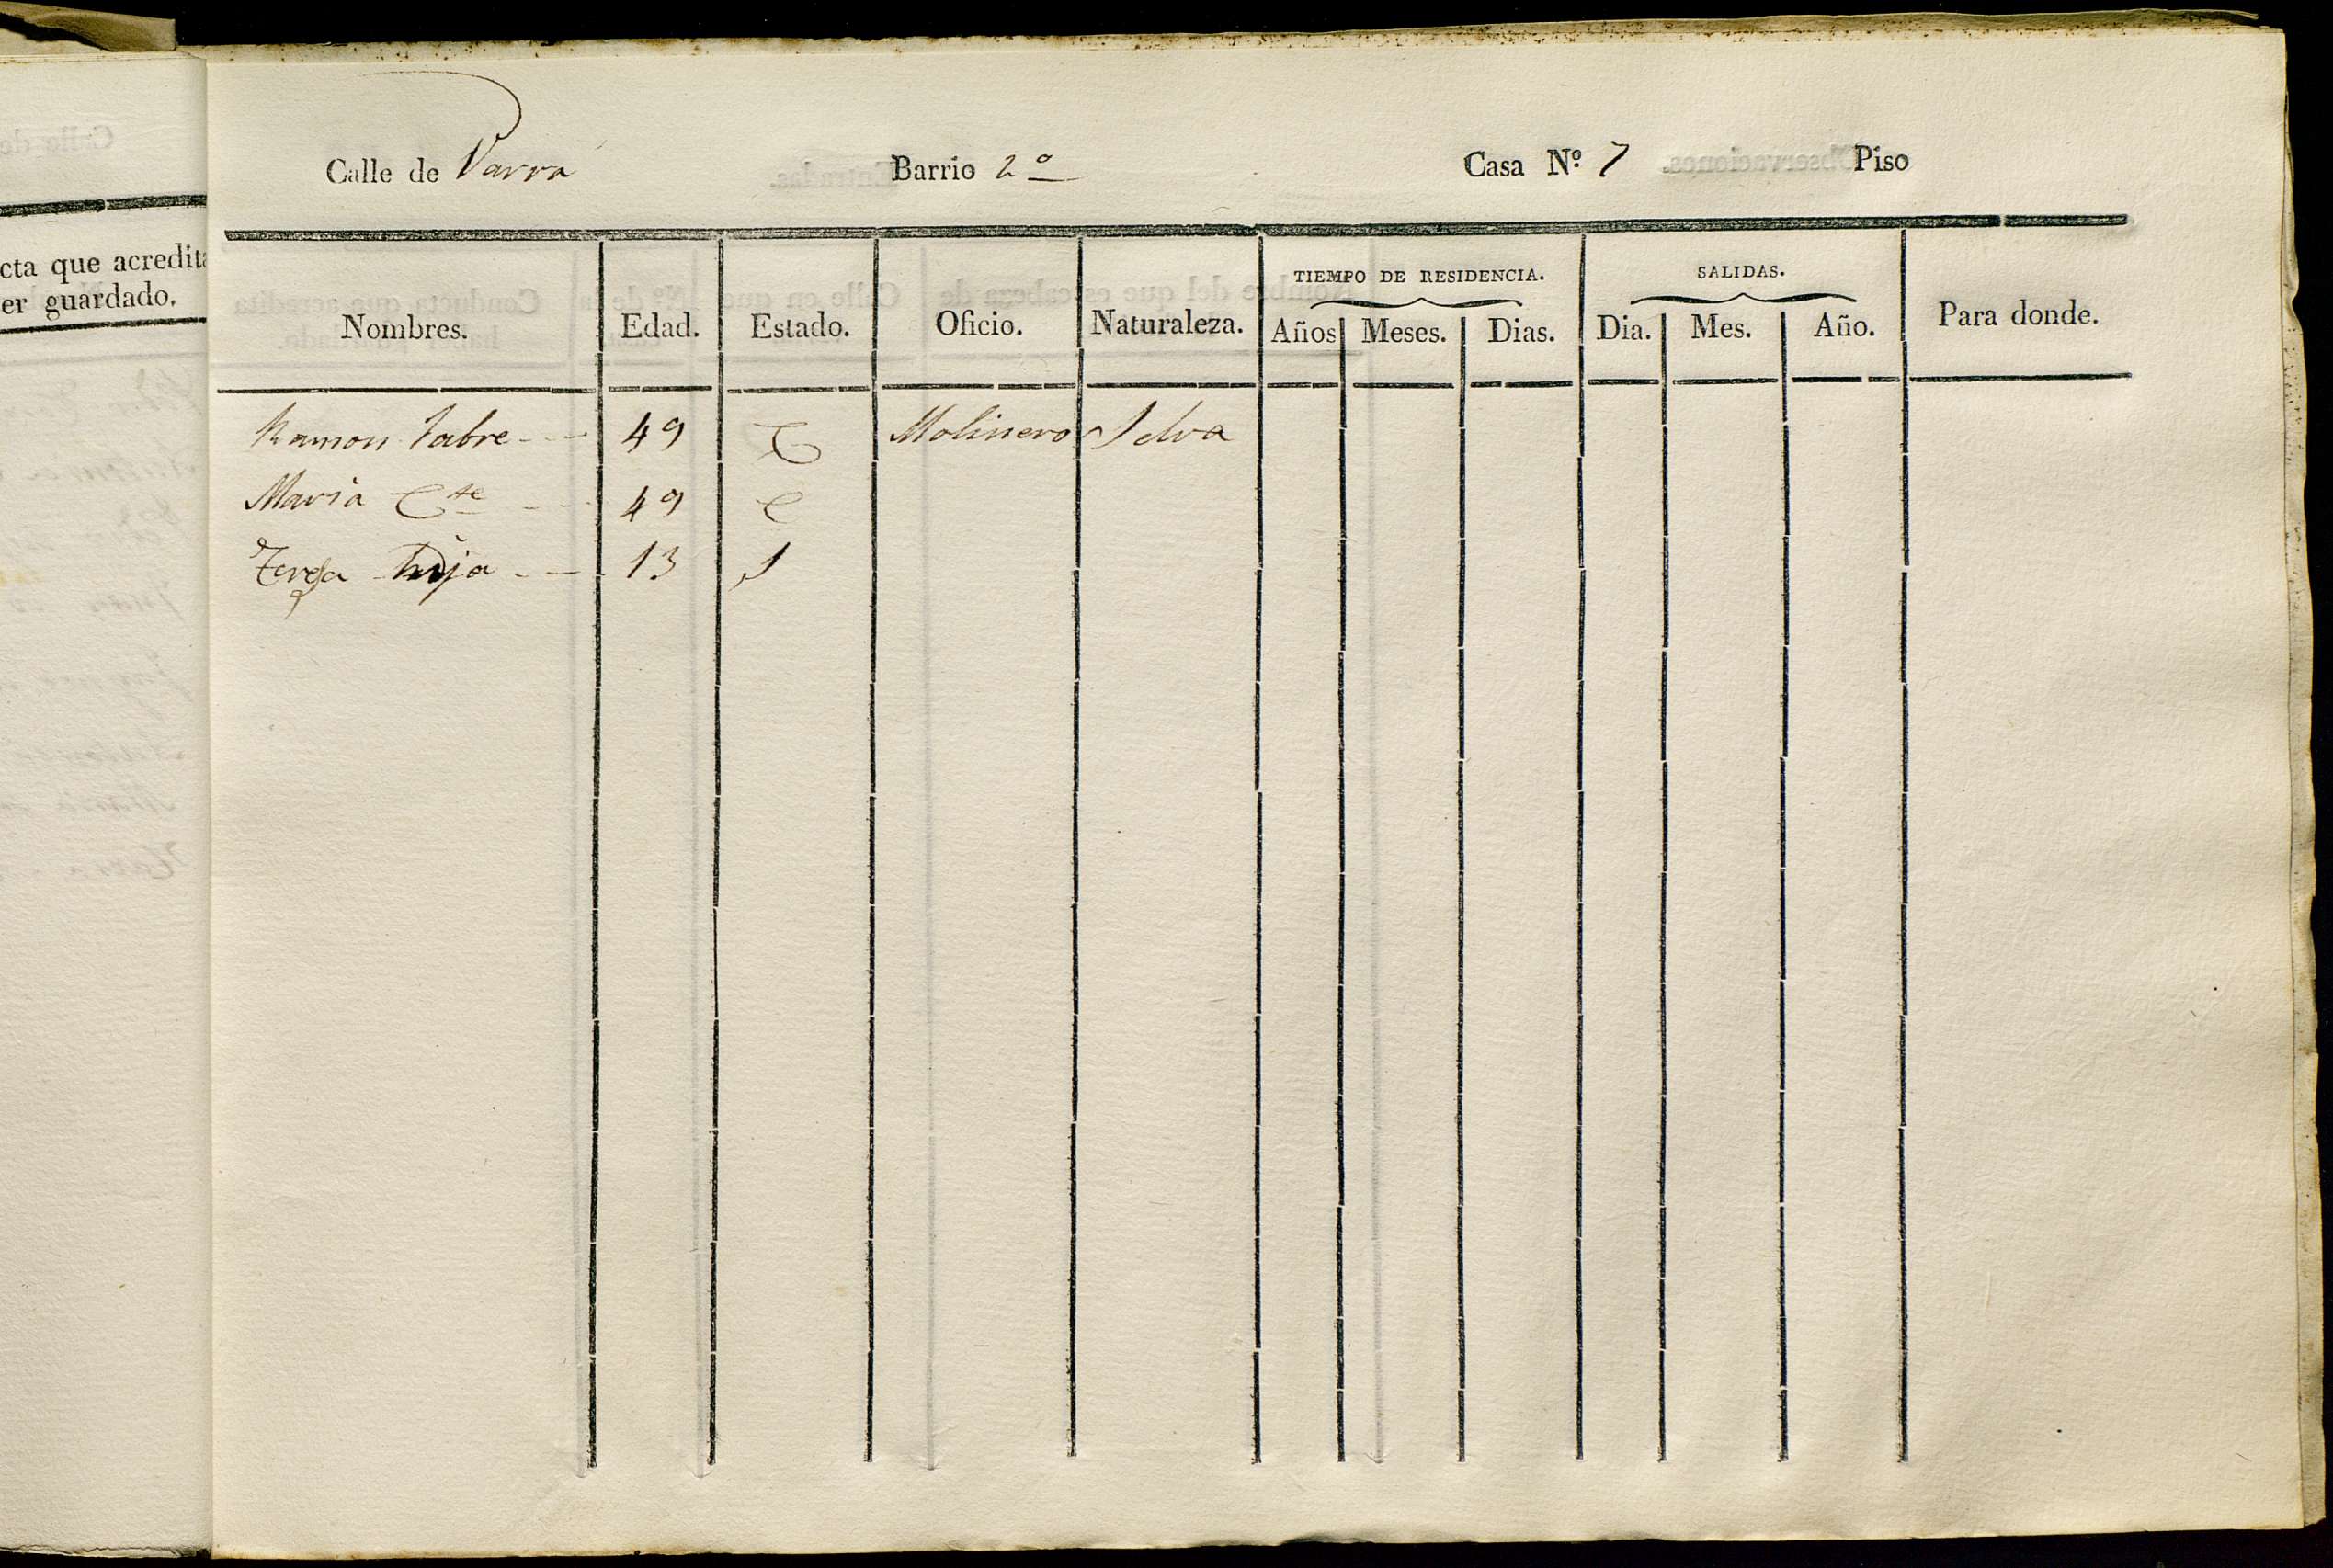 cta que acredita
er guardado.
Calle de Parra Barrio 2º Casa Nº 7 Piso
TIEMPO DE RESIDENCIA. SALIDAS.
Nombres. Edad. Estado. Oficio. Naturaleza. Años Meses. Dias. Dia. Mes. Año. Para donde.
Ramon Fabre 49 C Molinero Selva
Maria Cte 49 C
Teresa hija 13 S